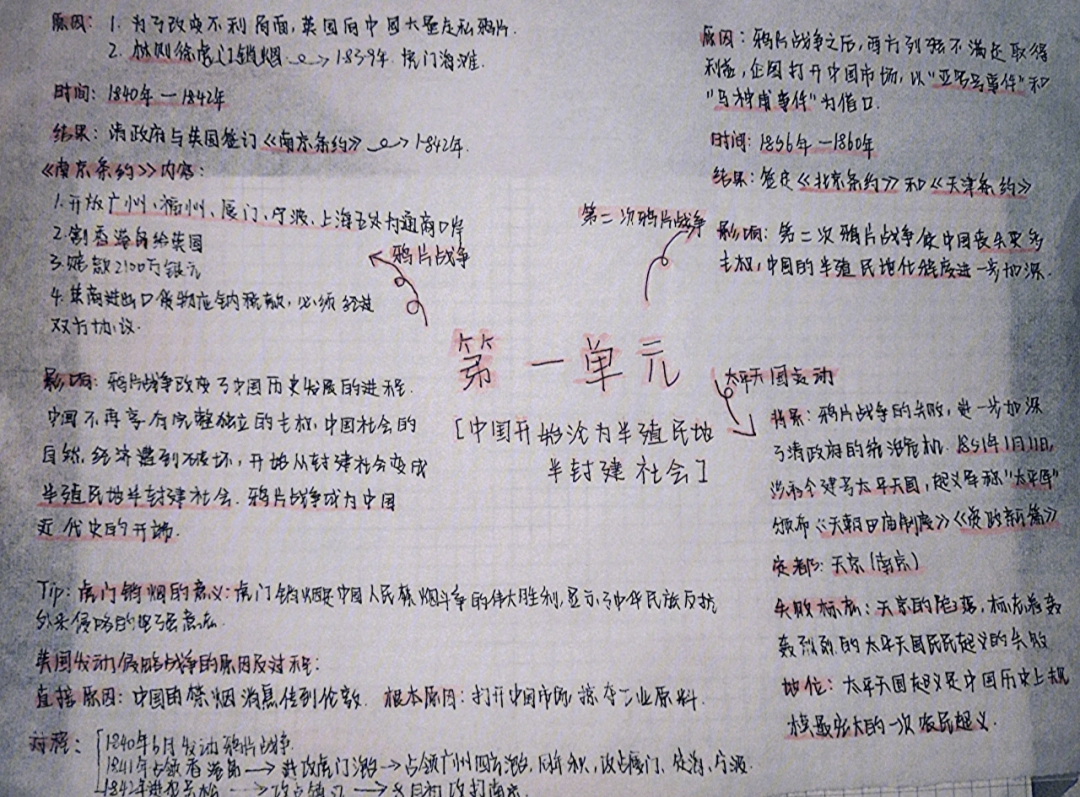 原因：1. 为了改变不利局面，英国向中国大量走私鸦片.
2. 林则徐虎门销烟 → 1839年. 虎门海滩.
时间：1840年—1842年
结果：清政府与英国签订《南京条约》→ 1842年.
《南京条约》内容：
1.开放广州、福州、厦门、宁波、上海五处为通商口岸
2.割香港岛给英国
3.赔款2100万银元
4.英商进出口货物应纳税款，必须经过
双方协议.
影响：鸦片战争改变了中国历史发展的进程.
中国不再享有完整独立的主权，中国社会的
自然经济遭到破坏，开始从封建社会变成
半殖民地半封建社会. 鸦片战争成为中国
近代史的开端.
鸦片战争
第二次鸦片战争
第一单元
[中国开始沦为半殖民地
半封建社会]
原因：鸦片战争之后，西方列强不满足取得
利益，企图打开中国市场，以"亚罗号事件"和
"马神甫事件"为借口.
时间：1856年—1860年
结果：签定《北京条约》和《天津条约》
影响：第二次鸦片战争使中国丧失更多
主权，中国的半殖民地化程度进一步加深.
太平天国运动
背景：鸦片战争的失败，进一步加深
了清政府的统治危机. 1851年1月11日，
洪秀全建号太平天国，起义军称"太平军"
颁布《天朝田亩制度》《资政新篇》
定都：天京（南京）
失败标志：天京的陷落，标志着轰
轰烈烈的太平天国农民起义的失败
地位：太平天国起义是中国历史上规
模最宏大的一次农民起义.
Tip：虎门销烟的意义：虎门销烟是中国人民禁烟斗争的伟大胜利，显示了中华民族反抗
外来侵略的坚强意志.
英国发动侵略战争的原因及过程：
直接原因：中国的禁烟消息传到伦敦. 根本原因：打开中国市场 掠夺工业原料.
过程：1840年6月发动鸦片战争.
1841年占领香港岛 → 进攻虎门炮台 → 占领广州四方炮台，同年秋，攻占厦门、定海、宁波.
1842年进犯长江 → 攻占镇江 → 8月初攻打南京.